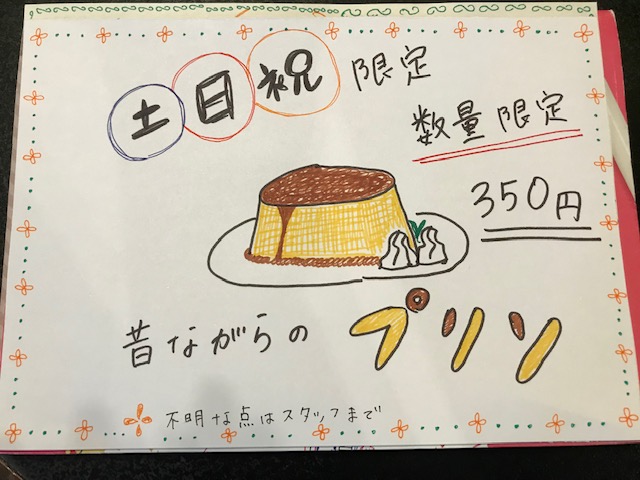 土日祝 限定
数量限定
350円
昔ながらの プリン
不明な点はスタッフまで